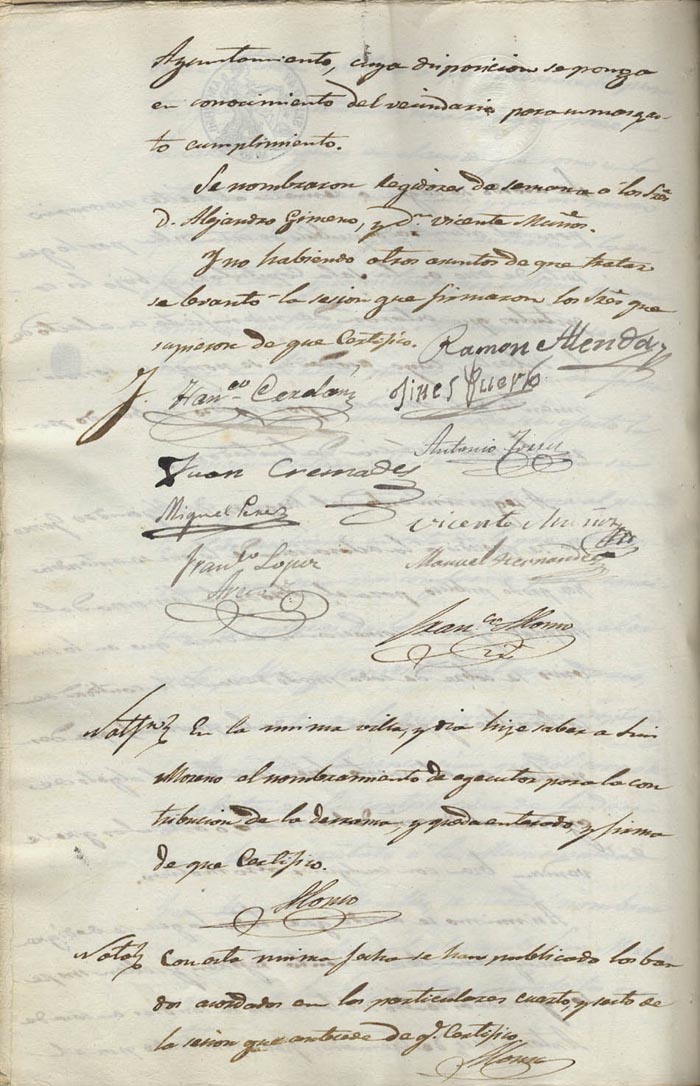 Ayuntamiento, cuya disposicion se ponga
en conocimiento del vecindario para su mas exac-
to cumplimiento.
Se nombraron Regidores de semana á los Sres
D. Alejandro Gimeno, y Dn Vicente Muñoz.
Y no habiendo otros asuntos de que tratar
se levantó la sesion que firmaron los Sres que
supieron de que Certifico.
Ramon Allenda
Franco Cerdan
Gines Puerto
Antonio
Juan Cremades
Miguel Perez
Vicente Muñoz
Franco Lopez
Manuel Hernandez
Franco Alonso
En la misma villa, y dia hize saber a Luis
Moreno el nombramiento de egecutor para la con
tribucion de la derrama, y queda enterado, y firma
de que Certifico.
Alonso
Nota Con esta misma fecha se han publicado los ban
dos acordados en los particulares cuarto, y sesto de
la sesion que antecede de q. Certifico
Alonso